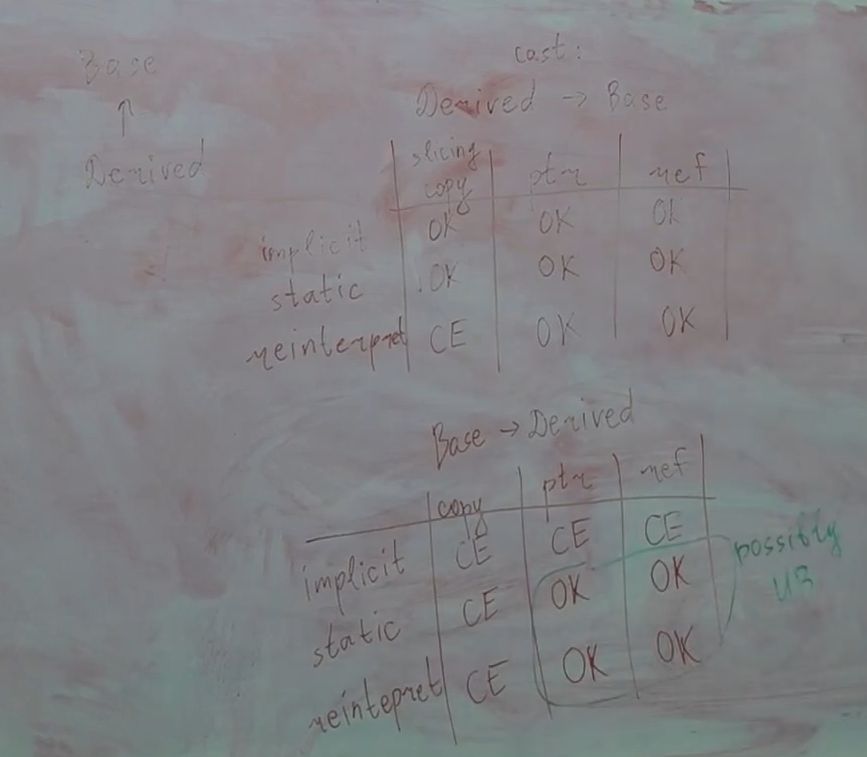 Base
↑
Derived
cast:
Derived → Base
slicing copy ptr ref
implicit OK OK OK
static OK OK OK
reinterpret CE OK OK
Base → Derived
copy ptr ref
implicit CE CE CE
static CE OK OK
reintepret CE OK OK
possibly
UB